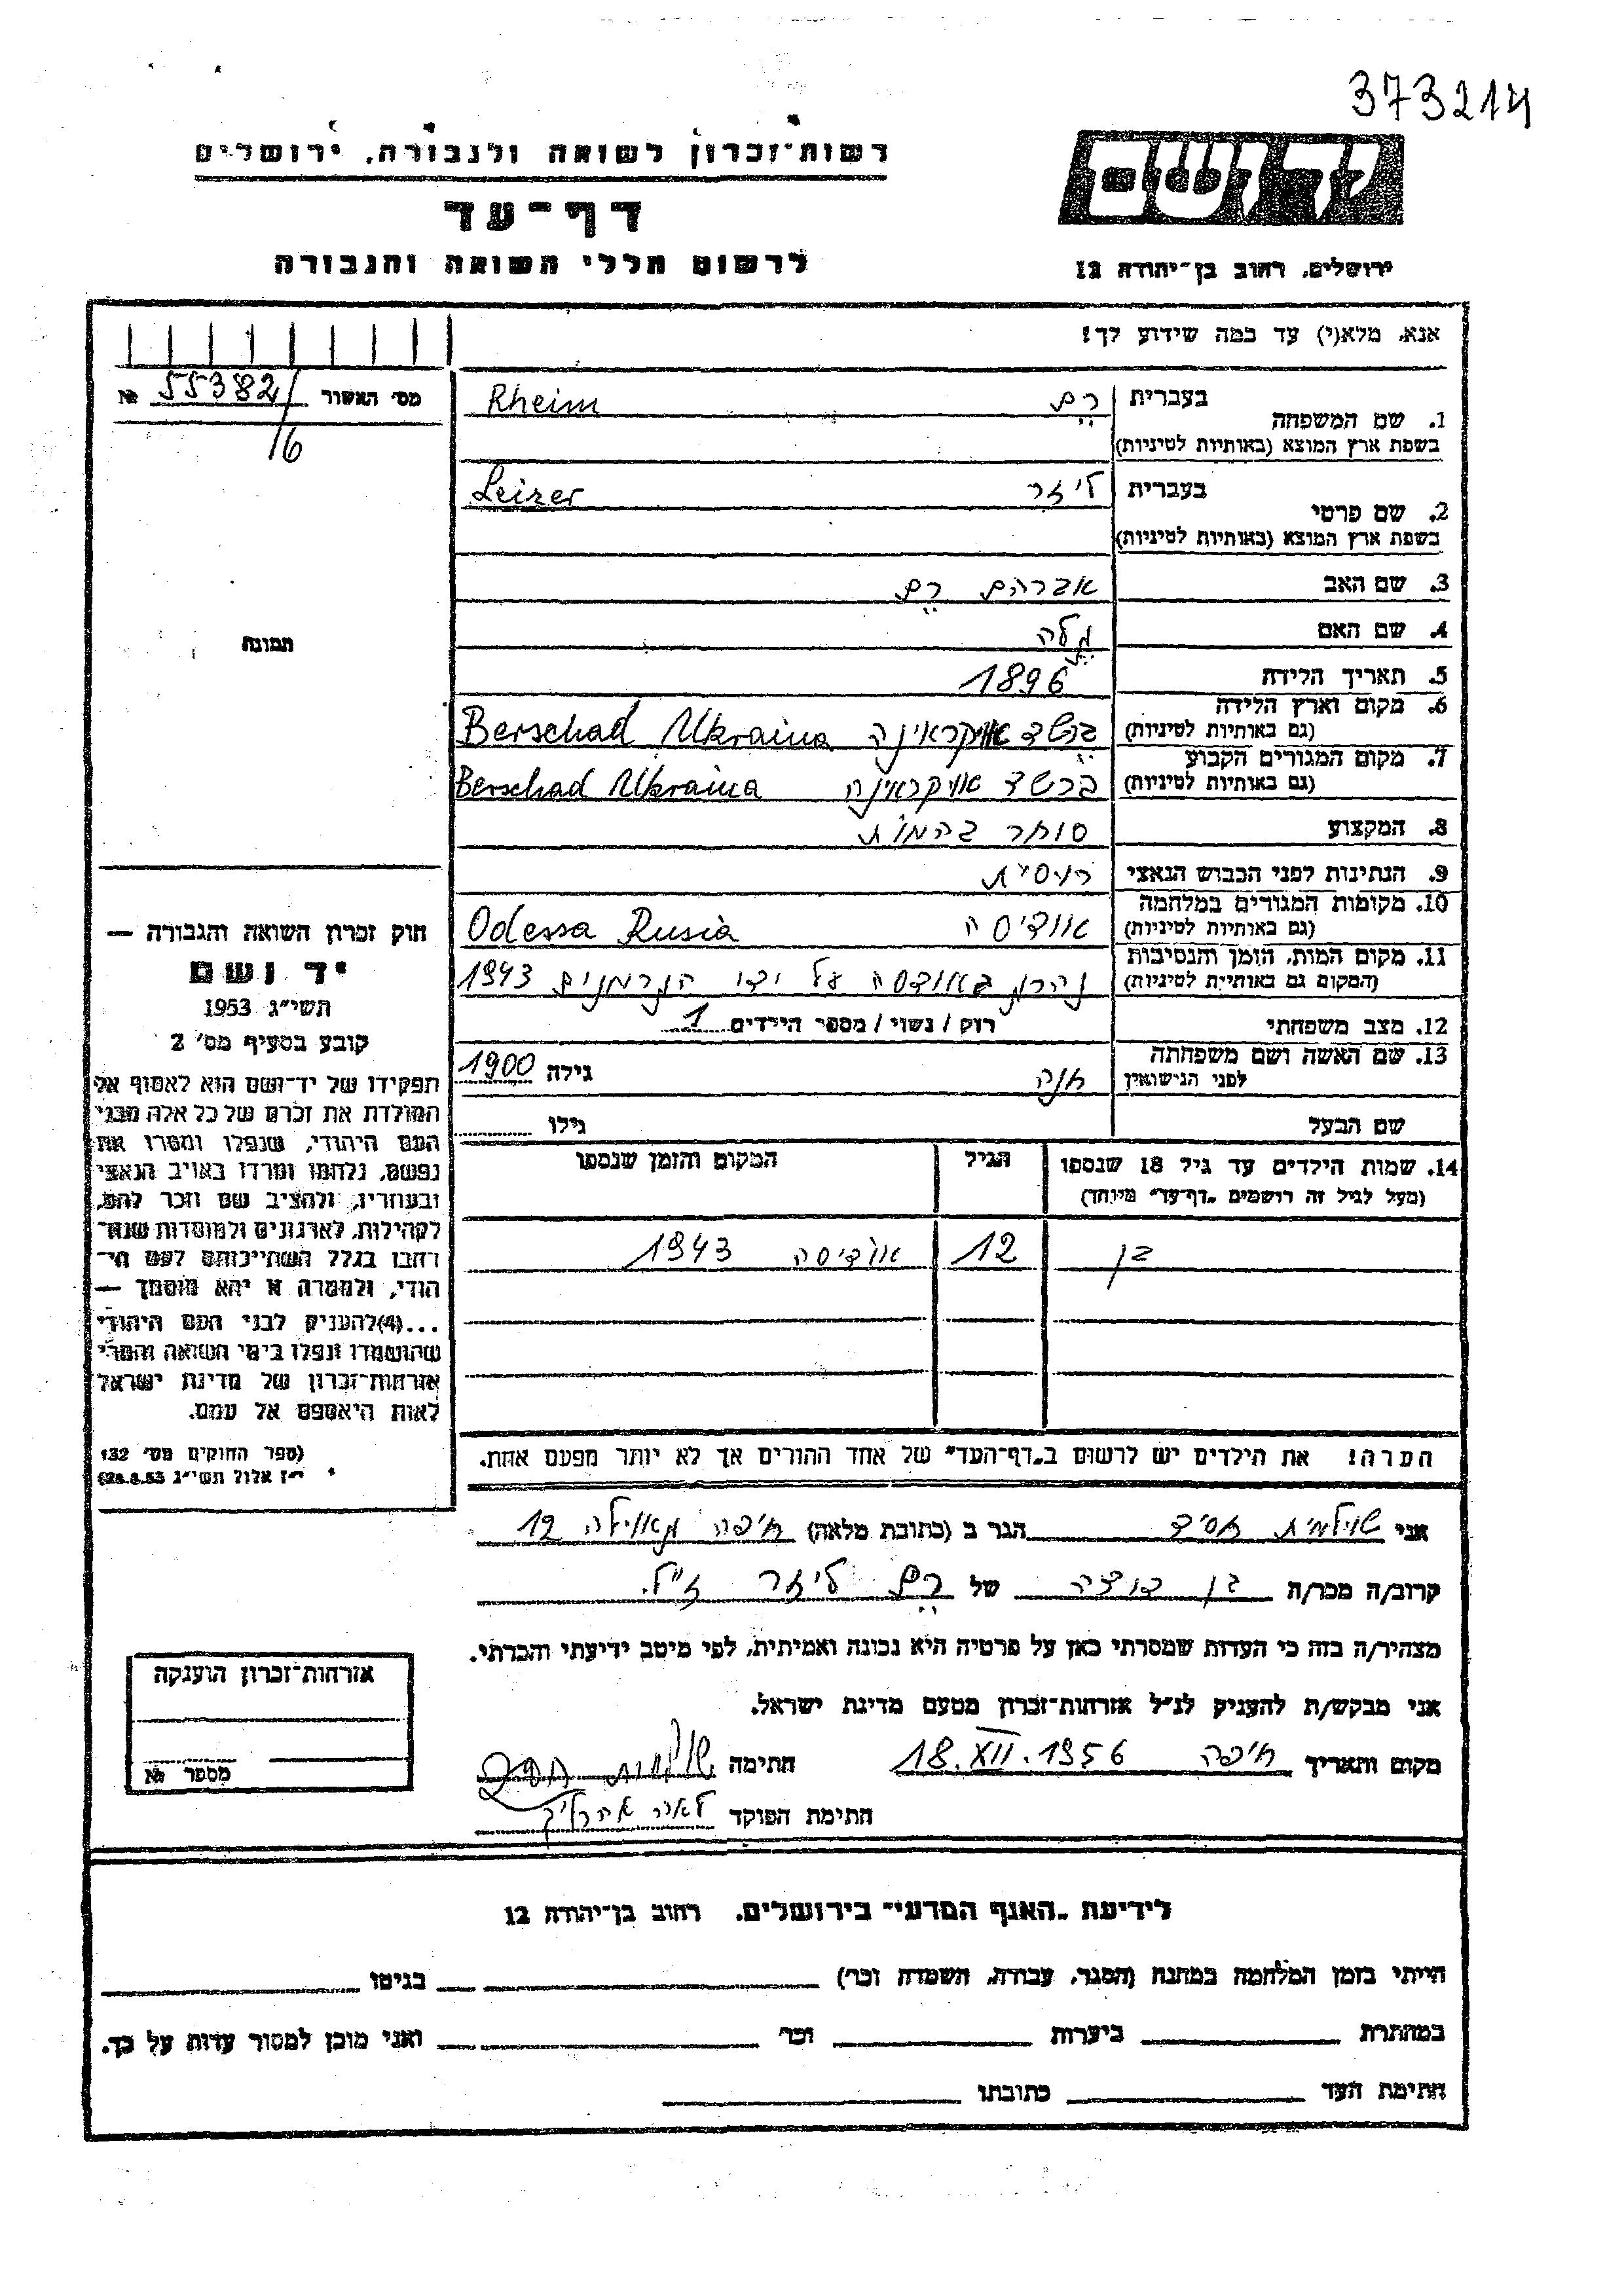 373214
רשות־זכרון לשואה ולגבורה, ירושלים
דף־עד
לרשום חללי השואה והגבורה
ידושם
ירושלים, רחוב בן־יהודה 12
אנא, מלא(י) עד כמה שידוע לך!
מס׳ האשור 55382/ №
16
1. שם המשפחה בעברית רים Rheim
בשפת ארץ המוצא (באותיות לטיניות)
2. שם פרטי בעברית ליזר Leizer
בשפת ארץ המוצא (באותיות לטיניות)
3. שם האב אברהם רים
4. שם האם
תמונה
5. תאריך הלידה 1896
6. מקום וארץ הלידה (גם באותיות לטיניות) ברשד אוקראינה Berschad Ukraina
7. מקום המגורים הקבוע (גם באותיות לטיניות) ברשד אוקראינה Berschad Ukraina
8. המקצוע סוחר בהמות
9. הנתינות לפני הכבוש הנאצי רוסית
10. מקומות המגורים במלחמה (גם באותיות לטיניות) אודיסה Odessa Rusia
11. מקום המות, הזמן והנסיבות (המקום גם באותיות לטיניות) נהרג באודסה על ידי הגרמנים 1943
12. מצב משפחתי רוק / נשוי / מספר הילדים 1
13. שם האשה ושם משפחתה לפני הנישואין חנה גילה 1900
שם הבעל גילו
14. שמות הילדים עד גיל 18 שנספו הגיל המקום והזמן שנספו
(מעל לגיל זה רושמים „דף־עד״ מיוחד)
בן 12 אודיסה 1943
הערה! את הילדים יש לרשום ב„דף־העד״ של אחד ההורים אך לא יותר מפעם אחת.
חוק זכרון השואה והגבורה —
יד ושם
תשי״ג 1953
קובע בסעיף מס׳ 2
תפקידו של יד־ושם הוא לאסוף אל
המולדת את זכרם של כל אלה מבני
העם היהודי, שנפלו ומסרו את
נפשם, נלחמו ומרדו באויב הנאצי
ובעוזריו, ולהציב שם וזכר להם,
לקהילות, לארגונים ולמוסדות שנח־
רבו בגלל השתייכותם לעם הי־
הודי, ולמטרה זו יהא מוסמך —
...(4)להעניק לבני העם היהודי
שהושמדו ונפלו בימי השואה והמרי
אזרחות־זכרון של מדינת ישראל
לאות היאספם אל עמם.
(ספר החוקים מס׳ 132
י״ז אלול תשי״ג 28.8.53)
אני שולמית חסיד הגר ב (כתובת מלאה) חיפה 12
קרוב/ה מכר/ה בן דודה של רים ליזר ז״ל.
מצהיר/ה בזה כי העדות שמסרתי כאן על פרטיה היא נכונה ואמיתית, לפי מיטב ידיעתי והכרתי.
אני מבקש/ת להעניק לנ״ל אזרחות־זכרון מטעם מדינת ישראל.
מקום ותאריך חיפה 18.XII.1956 חתימה שולמית חסיד
חתימת הפוקד
אזרחות־זכרון הוענקה
מספר №
לידיעת „האגף המדעי״ בירושלים, רחוב בן־יהודה 12
הייתי בזמן המלחמה במחנה (הסגר, עבודה, השמדה וכו׳) בגיטו
במחתרת ביערות וכו׳ ואני מוכן למסור עדות על כך.
חתימת העד כתובתו